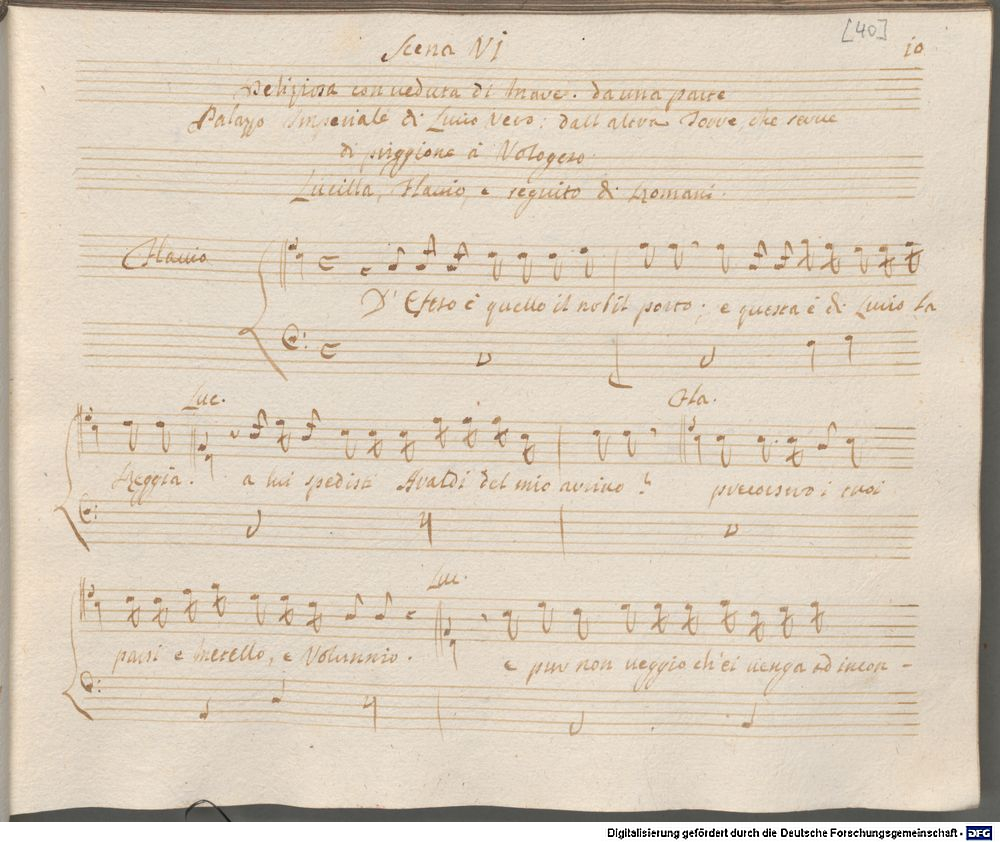 [40]
Scena VI
10
Deliziosa con veduta di Mare. da una parte
Palazzo Imperiale di Lucio Vero: dall altra Torre, che serve
di priggione à Vologeso
Lucilla, Flavio, e seguito di Romani.
Flavio
D' Efeso è quello il nobil porto; e questa è di Lucio la
Luc. Fla.
Reggia. a lui spedisti Araldi del mio arrivo? precorsero i tuoi
Luc.
passi e Metello, e Volunnio. e pur non veggio ch'ei venga ad incon -
Digitalisierung gefördert durch die Deutsche Forschungsgemeinschaft - DFG